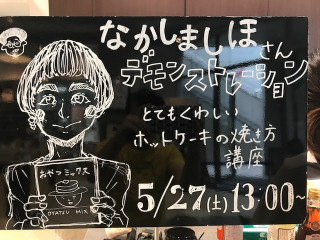 なかしましほさん
デモンストレーション
とてもくわしい
ホットケーキの焼き方
講座
5/27(土)13:00~
おやつミックス
OYATSU MIX